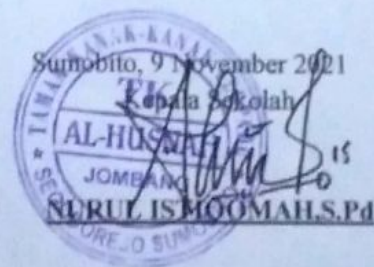 Sumobito, 9 November 2021
Kepala Sekolah
TAMAN KANAK-KANAK
TK
AL-HUSNA
JOMBANG
NURUL ISMOOMAH,S.Pd